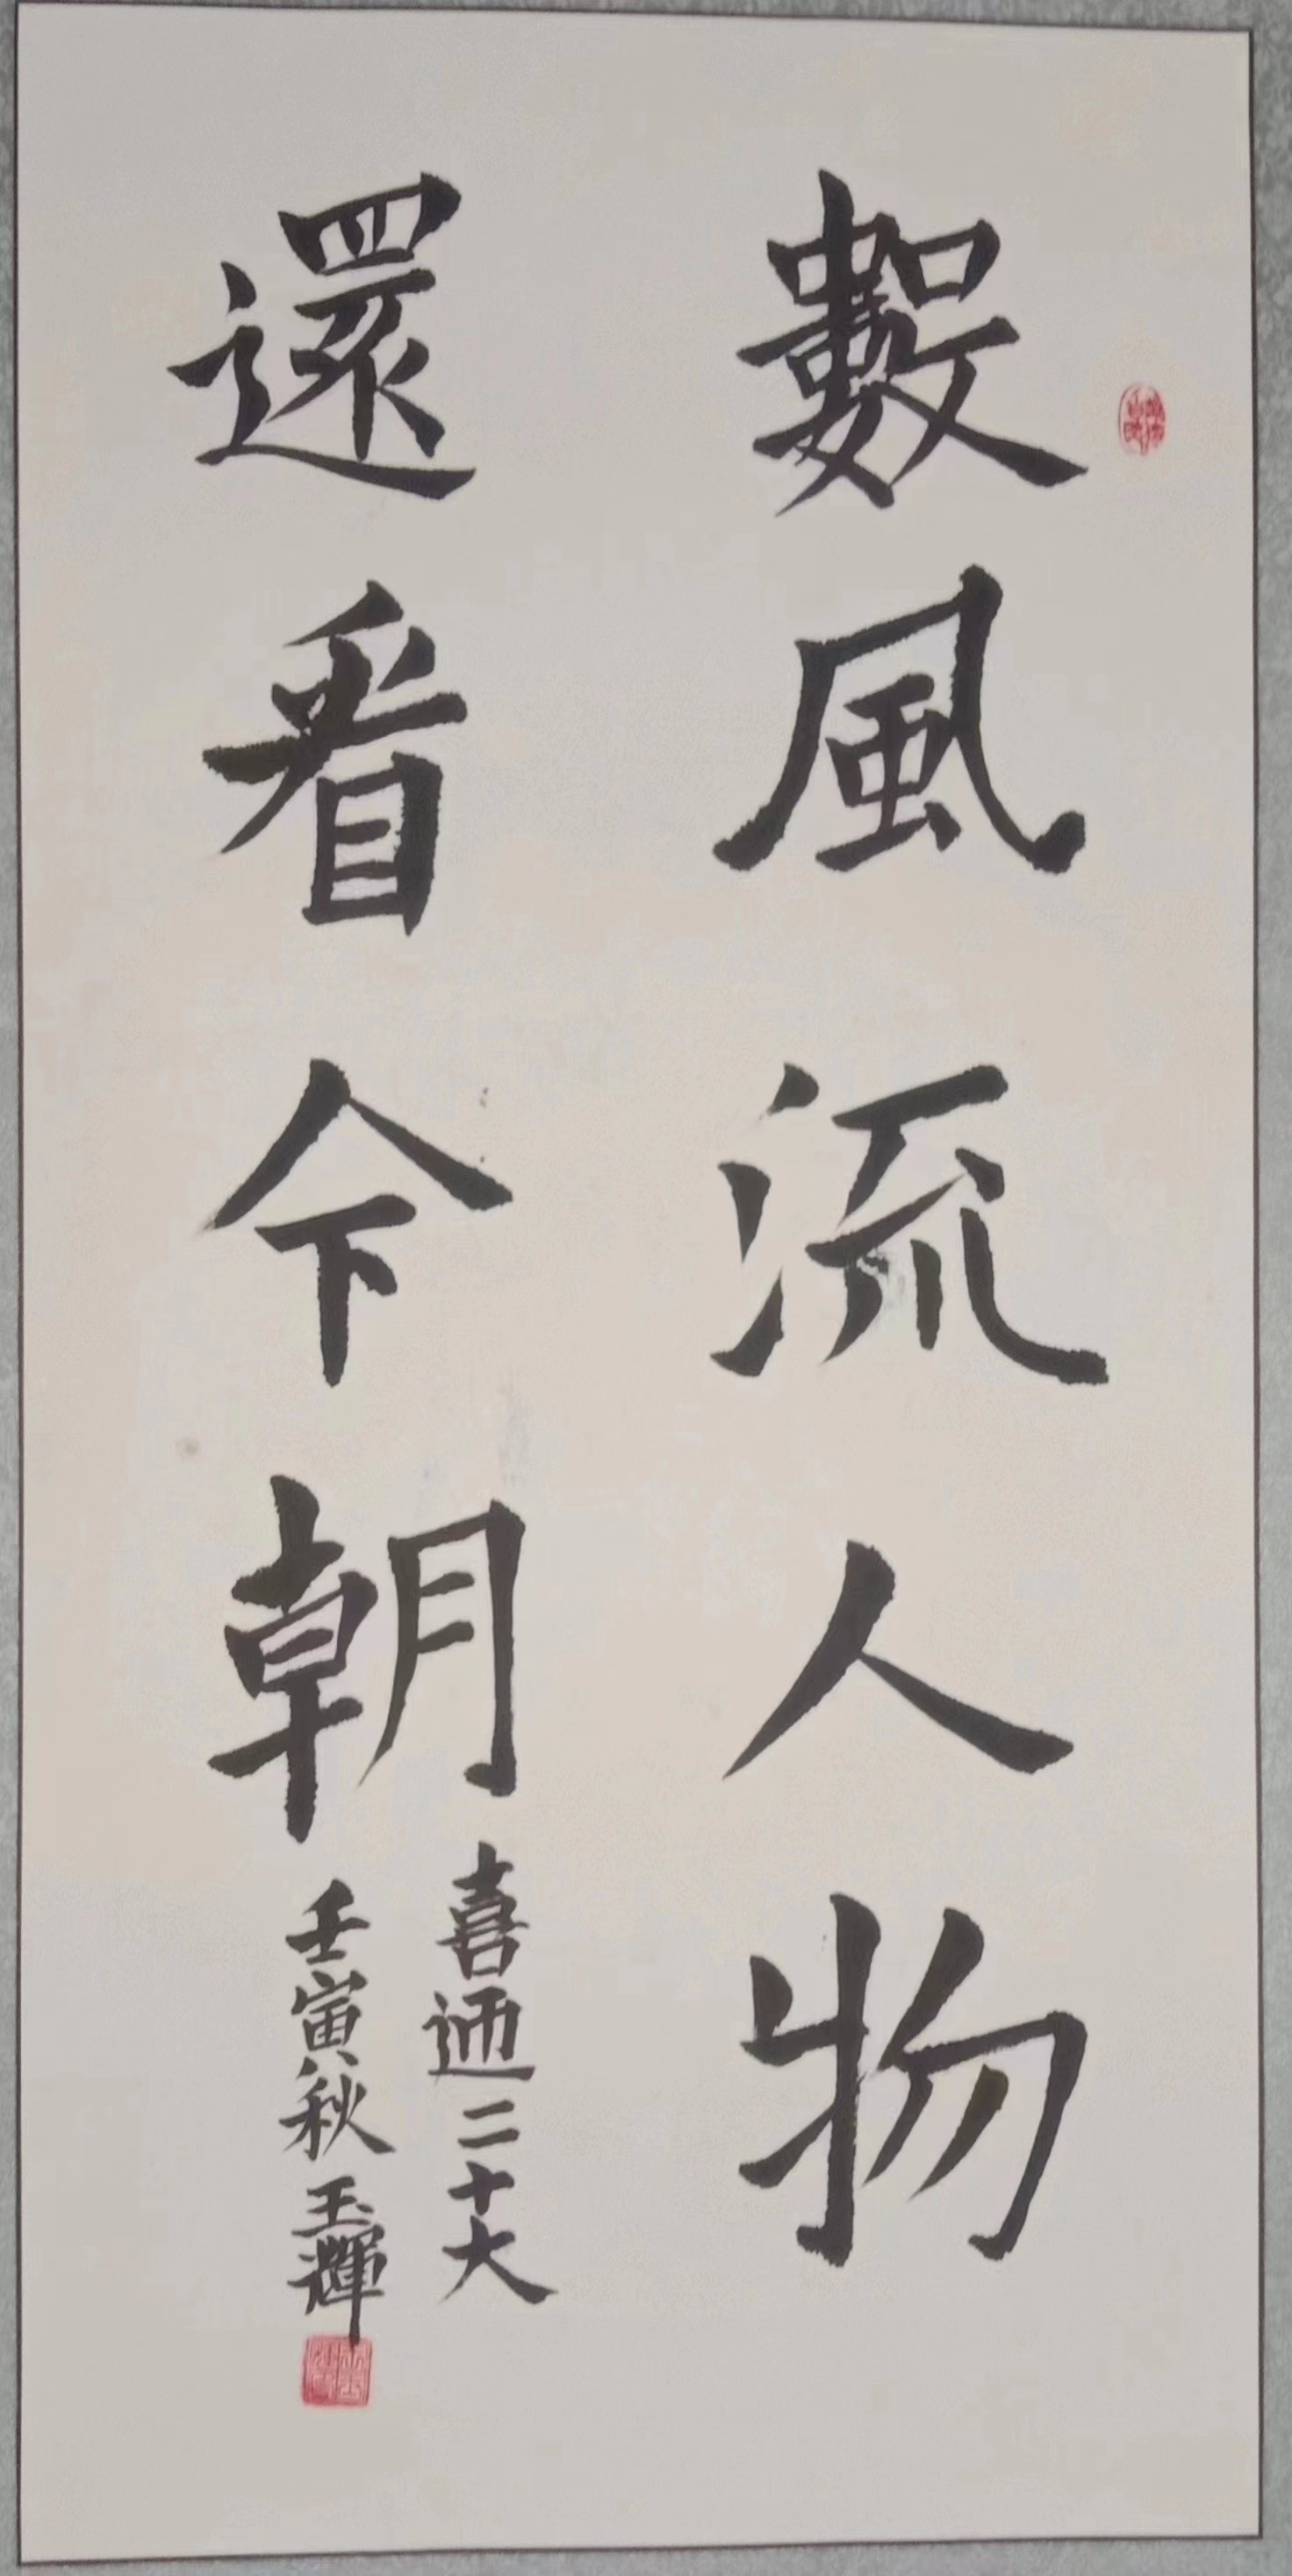 數風流人物
還看今朝
喜迊二十大
壬寅秋玉輝